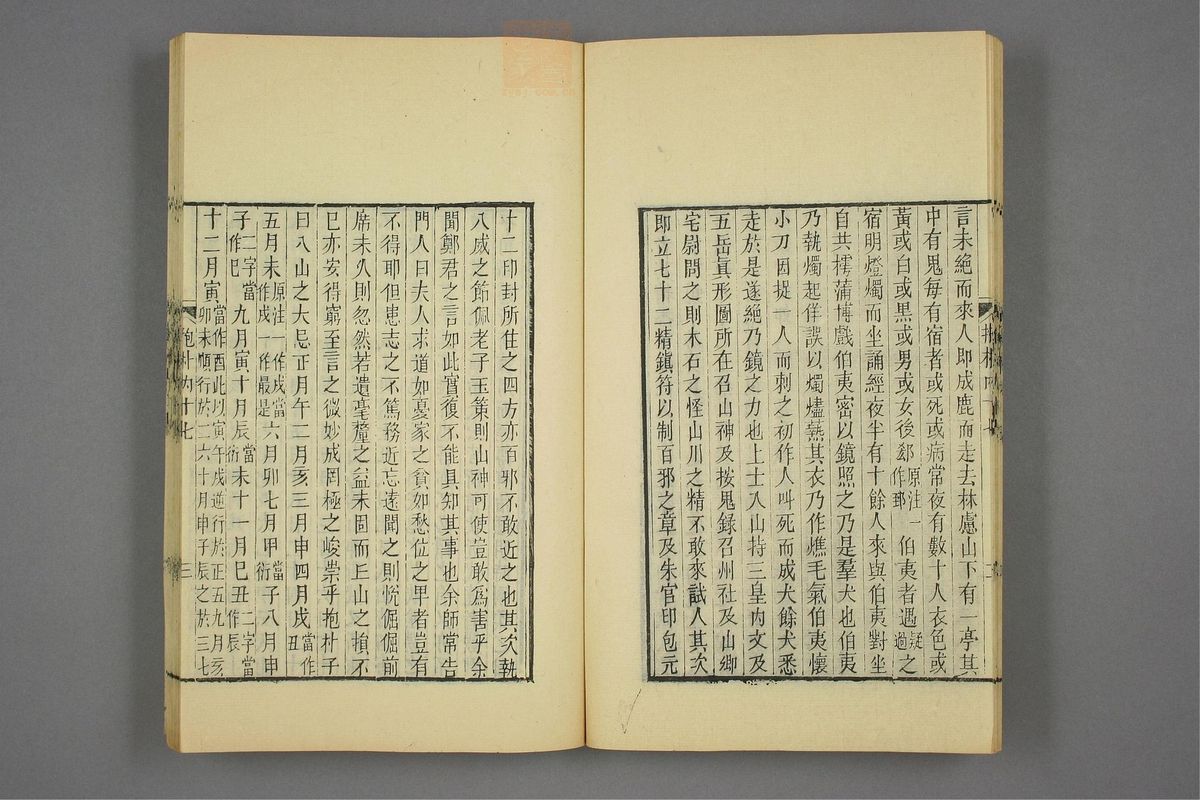 言未絕而來人即成鹿而走去林慮山下有一亭其
中有鬼每有宿者或死或病常夜有數十人衣色或
黃或白或黑或男或女後郄原注一作郅伯夷者遇疑過之
宿明燈燭而坐誦經夜半有十餘人來與伯夷對坐
自共樗蒲博戲伯夷密以鏡照之乃是羣犬也伯夷
乃執燭起佯誤以燭燼爇其衣乃作燋毛氣伯夷懷
小刀因捉一人而刺之初作人叫死而成犬餘犬悉
走於是遂絕乃鏡之力也上士入山持三皇內文及
五岳眞形圖所在召山神及按鬼錄召州社及山卿
宅尉問之則木石之怪山川之精不敢來試人其次
即立七十二精鎭符以制百邪之章及朱官印包元
十二印封所住之四方亦百邪不敢近之也其次執
八威之節佩老子玉策則山神可使豈敢爲害乎余
聞鄭君之言如此實復不能具知其事也余師常告
門人曰夫人求道如憂家之貧如愁位之卑者豈有
不得耶但患志之不篤務近忘遠聞之則悅倔倔前
席未久則忽然若遺毫釐之益未固而丘山之損不
已亦安得窮至言之微妙成罔極之峻崇乎抱朴子
曰入山之大忌正月午二月亥三月申四月戌當作丑
五月未原注一作戌當作戌一作最是六月卯七月甲當衍子八月申
子二字當作巳九月寅十月辰當衍未十一月巳丑二字當作辰
十二月寅當作酉此以寅午戌逆行於正五九月亥卯未順行於二六十月申子辰之於三七
抱朴內十七
三